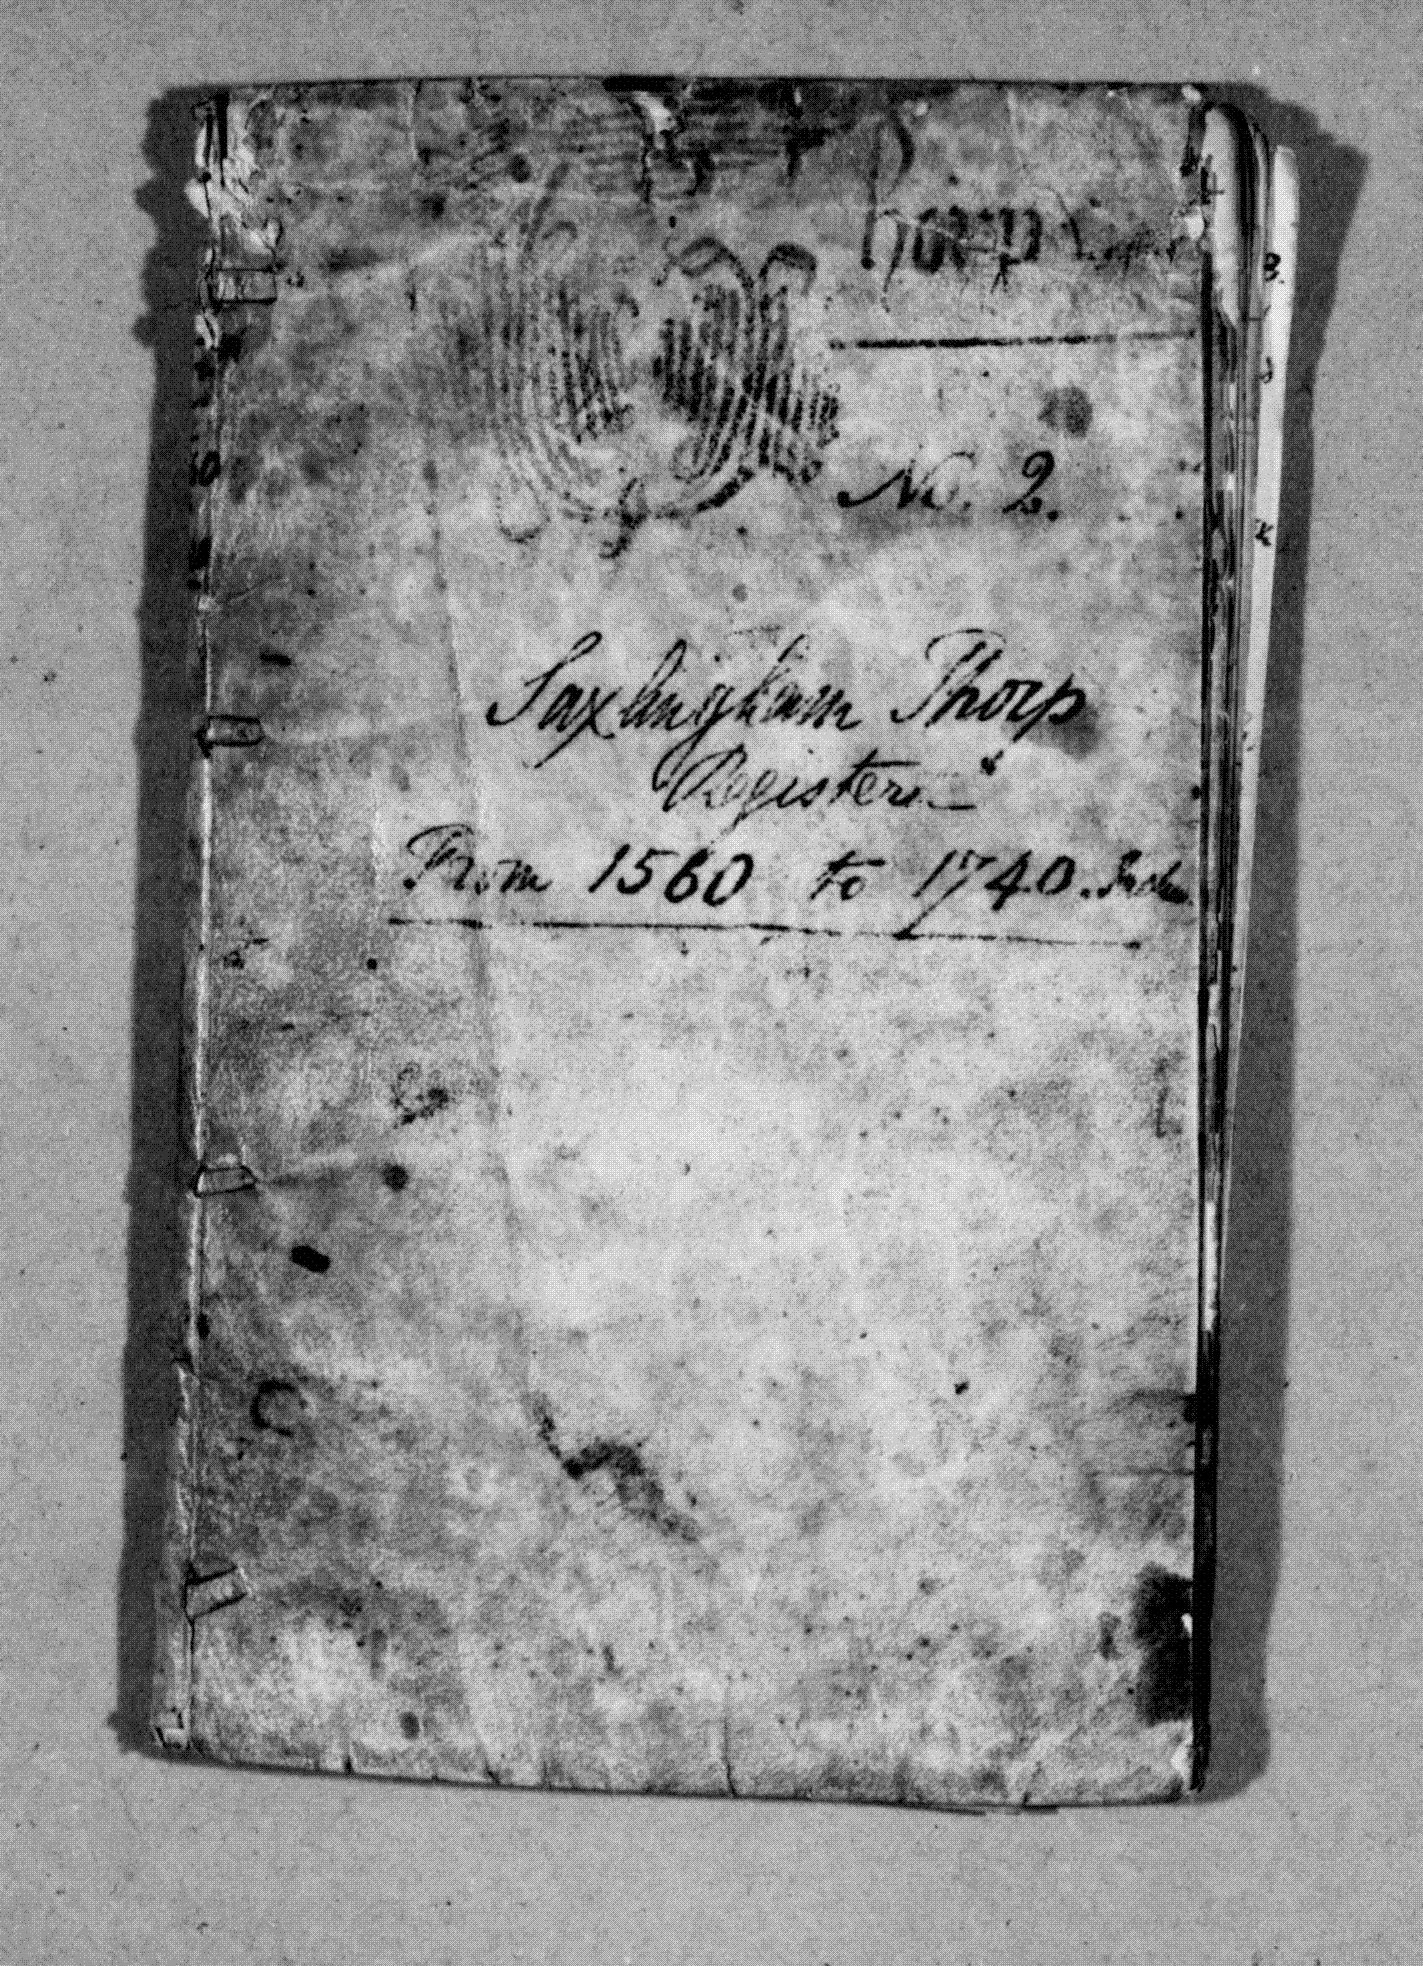 horp
No. 2.
Saxlingham Thorp
Register
From 1560 to 1740.